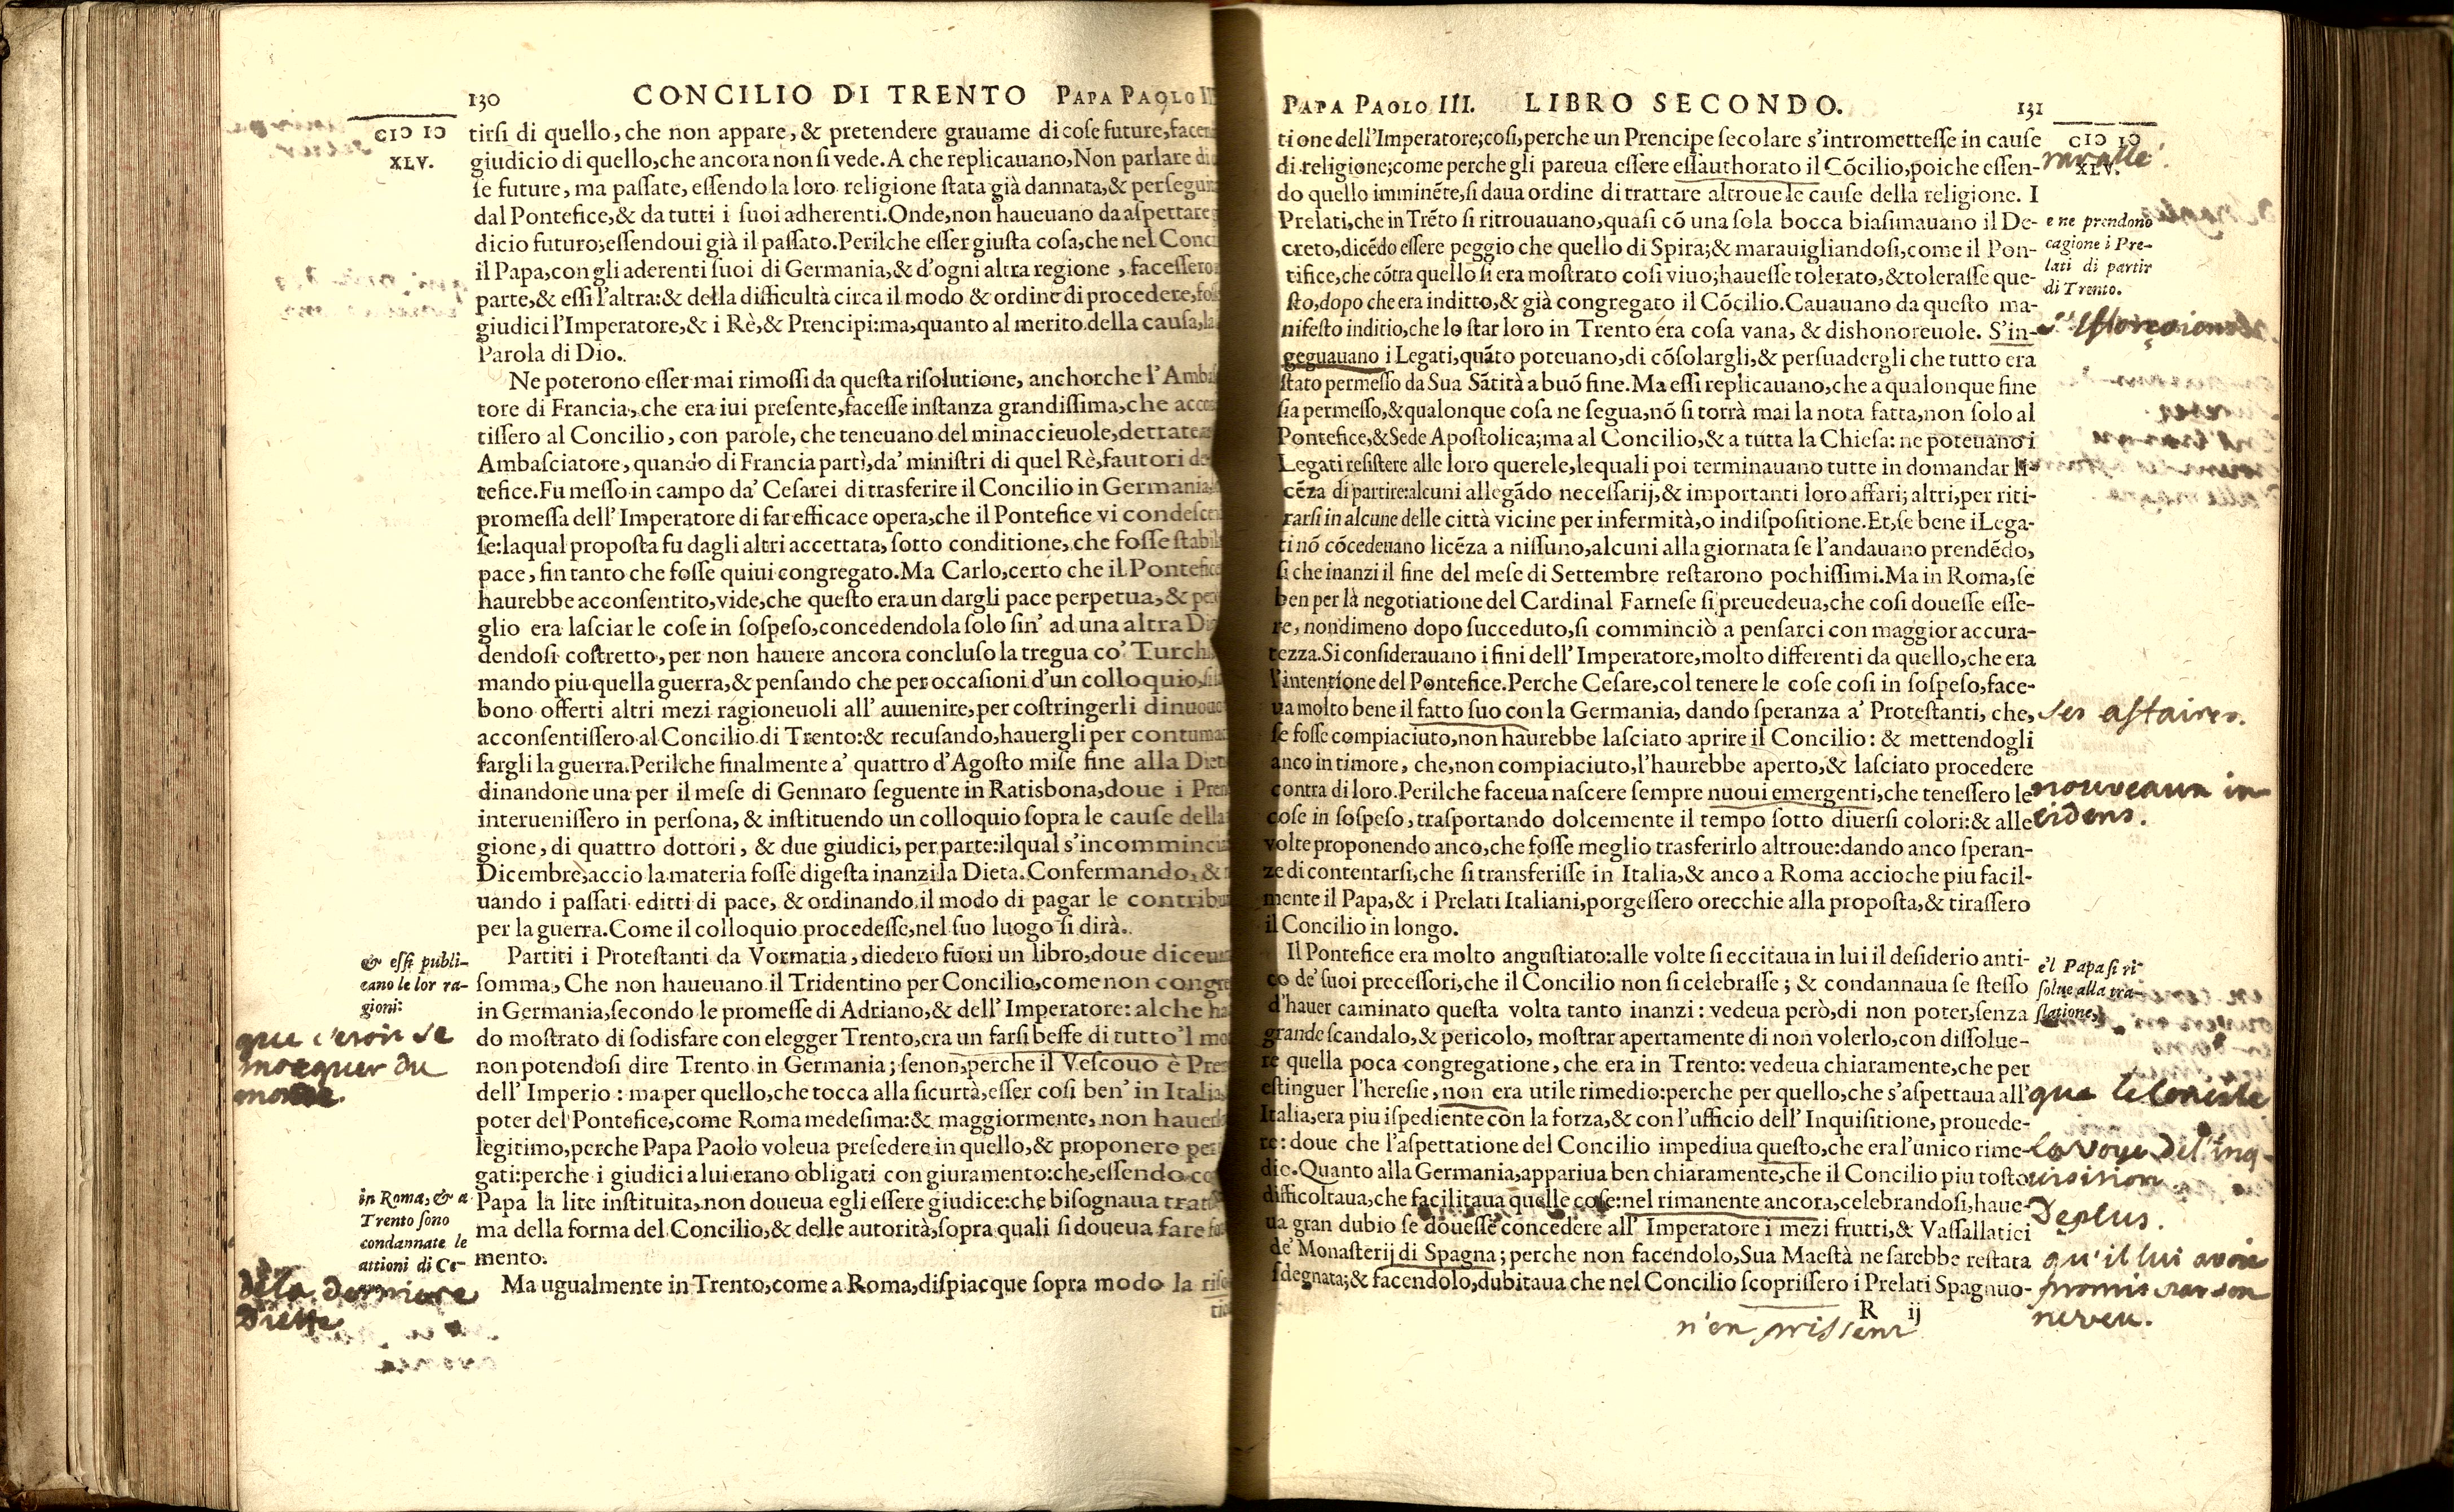 130 CONCILIO DI TRENTO PAPA PAOLO
CIƆ IƆ
XLV.
tirsi di quello, che non appare, & pretendere grauame di cose future, facen
giudicio di quello, che ancora non si vede. A che replicauano, Non parlare di
se future, ma passate, essendo la loro religione stata già dannata, & persegui
dal Pontefice, & da tutti i suoi adherenti. Onde, non haueuano da aspettare
dicio futuro; essendoui già il passato. Perilche esser giusta cosa, che nel Conci
il Papa, con gli aderenti suoi di Germania, & d'ogni altra regione, facessero
parte, & essi l'altra: & della difficultà circa il modo & ordine di procedere, fos
giudici l'Imperatore, & i Rè, & Prencipi: ma, quanto al merito della causa, la
Parola di Dio.
Ne poterono esser mai rimossi da questa risolutione, anchorche l'Ambas
tore di Francia, che era iui presente, facesse instanza grandissima, che accon
tissero al Concilio, con parole, che teneuano del minaccieuole, dettate
Ambasciatore, quando di Francia partì, da' ministri di quel Rè, fautori de
tefice. Fu messo in campo da' Cesarei di trasferire il Concilio in Germania,
promessa dell' Imperatore di far efficace opera, che il Pontefice vi condescen
se: laqual proposta fu dagli altri accettata, sotto conditione, che fosse stabil
pace, fin tanto che fosse quiui congregato. Ma Carlo, certo che il Pontefice
haurebbe acconsentito, vide, che questo era un dargli pace perpetua, & per
glio era lasciar le cose in sospeso, concedendola solo sin' ad una altra Di
dendosi costretto, per non hauere ancora concluso la tregua co' Turchi
mando piu quella guerra, & pensando che per occasioni d'un colloquio,
bono offerti altri mezi ragioneuoli all' auuenire, per costringerli dinuouo
acconsentissero al Concilio di Trento: & recusando, hauergli per contumac
fargli la guerra. Perilche finalmente a' quattro d'Agosto mise fine alla Diet
dinandone una per il mese di Gennaro seguente in Ratisbona, doue i Pren
interuenissero in persona, & instituendo un colloquio sopra le cause della
gione, di quattro dottori, & due giudici, per parte: ilqual s'incomminci
Dicembre, accio la materia fosse digesta inanzi la Dieta. Confermando, &
uando i passati editti di pace, & ordinando il modo di pagar le contribu
per la guerra. Come il colloquio procedesse, nel suo luogo si dirà.
& essi publi-
cano le lor ra-
gioni:
Partiti i Protestanti da Vormatia, diedero fuori un libro, doue diceua
somma, Che non haueuano il Tridentino per Concilio, come non congre
in Germania, secondo le promesse di Adriano, & dell' Imperatore: alche ha
que c'eroit se
mocquer du
monde.
do mostrato di sodisfare con elegger Trento, era un farsi beffe di tutto'l mo
non potendosi dire Trento in Germania; senon, perche il Vescouo è Pren
dell' Imperio: ma per quello, che tocca alla sicurtà, esser cosi ben' in Italia,
poter del Pontefice, come Roma medesima: & maggiormente, non hauer
legitimo, perche Papa Paolo voleua presedere in quello, & proponere per
gati: perche i giudici a lui erano obligati con giuramento: che, essendo co
in Roma, & a
Trento sono
condannate le
attioni di Ce-
Papa la lite instituita, non doueua egli essere giudice: che bisognaua trat
ma della forma del Concilio, & delle autorità, sopra quali si doueua fare
mento.
Ma ugualmente in Trento, come a Roma, dispiacque sopra modo la riso
de la derniere
Diette
PAPA PAOLO III. LIBRO SECONDO. 131
CIƆ IƆ
XLV.
tione dell'Imperatore; cosi, perche un Prencipe secolare s'intromettesse in cause
di religione; come perche gli pareua essere essauthorato il Cõcilio, poiche essen-
do quello imminẽte, si daua ordine di trattare altroue le cause della religione. I
Prelati, che in Trẽto si ritrouauano, quasi cõ una sola bocca biasimauano il De-
creto, dicẽdo essere peggio che quello di Spira; & marauigliandosi, come il Pon-
tifice, che cõtra quello si era mostrato cosi viuo; hauesse tolerato, & tolerasse que-
sto, dopo che era inditto, & già congregato il Cõcilio. Cauauano da questo ma-
nifesto inditio, che lo star loro in Trento era cosa vana, & dishonoreuole. S'in-
geguauano i Legati, quãto poteuano, di cõsolargli, & persuadergli che tutto era
stato permesso da Sua Sãtità a buõ fine. Ma essi replicauano, che a qualonque fine
sia permesso, & qualonque cosa ne segua, nõ si torrà mai la nota fatta, non solo al
Pontefice, & Sede Apostolica; ma al Concilio, & a tutta la Chiesa: ne poteuano i
Legati resistere alle loro querele, lequali poi terminauano tutte in domandar li-
cẽza di partire: alcuni allegãdo necessarij, & importanti loro affari; altri, per riti-
rarsi in alcune delle città vicine per infermità, o indispositione. Et, se bene i Lega-
ti nõ cõcedeuano licẽza a nissuno, alcuni alla giornata se l'andauano prendẽdo,
si che inanzi il fine del mese di Settembre restarono pochissimi. Ma in Roma, se
ben per la negotiatione del Cardinal Farnese si preuedeua, che cosi douesse esse-
re, nondimeno dopo succeduto, si comminciò a pensarci con maggior accura-
tezza. Si considerauano i fini dell' Imperatore, molto differenti da quello, che era
l'intentione del Pontefice. Perche Cesare, col tenere le cose cosi in sospeso, face-
ua molto bene il fatto suo con la Germania, dando speranza a' Protestanti, che,
se fosse compiaciuto, non haurebbe lasciato aprire il Concilio: & mettendogli
anco in timore, che, non compiaciuto, l'haurebbe aperto, & lasciato procedere
contra di loro. Perilche faceua nascere sempre nuoui emergenti, che tenessero le
cose in sospeso, trasportando dolcemente il tempo sotto diuersi colori: & alle
volte proponendo anco, che fosse meglio trasferirlo altroue: dando anco speran-
ze di contentarsi, che si transferisse in Italia, & anco a Roma accioche piu facil-
mente il Papa, & i Prelati Italiani, porgessero orecchie alla proposta, & tirassero
il Concilio in longo.
Il Pontefice era molto angustiato: alle volte si eccitaua in lui il desiderio anti-
co de' suoi precessori, che il Concilio non si celebrasse; & condannaua se stesso
d'hauer caminato questa volta tanto inanzi: vedeua però, di non poter, senza
grande scandalo, & pericolo, mostrar apertamente di non volerlo, con dissolue-
re quella poca congregatione, che era in Trento: vedeua chiaramente, che per
estinguer l'heresie, non era utile rimedio: perche per quello, che s'aspettaua all'
Italia, era piu ispediente con la forza, & con l'ufficio dell' Inquisitione, prouede-
re: doue che l'aspettatione del Concilio impediua questo, che era l'unico rime-
dio. Quanto alla Germania, appariua ben chiaramente, che il Concilio piu tosto
difficoltaua, che facilitaua quelle cose: nel rimanente ancora, celebrandosi, haue-
ua gran dubio se douesse concedere all' Imperatore i mezi frutti, & Vassallatici
de' Monasterij di Spagna; perche non facendolo, Sua Maestà ne sarebbe restata
sdegnata; & facendolo, dubitaua che nel Concilio scoprissero i Prelati Spagnuo-
R ij
ravallé
e ne prendono
cagione i Pre-
lati di partir
di Trento.
ses affaires.
nouveaux in
cidens.
e'l Papa si ri-
solue alla tra-
slatione,
que le Concile
la voye de l'inq-
uisition
De plus.
qu'il lui avoit
promis par son
neveu.
n'en prissent